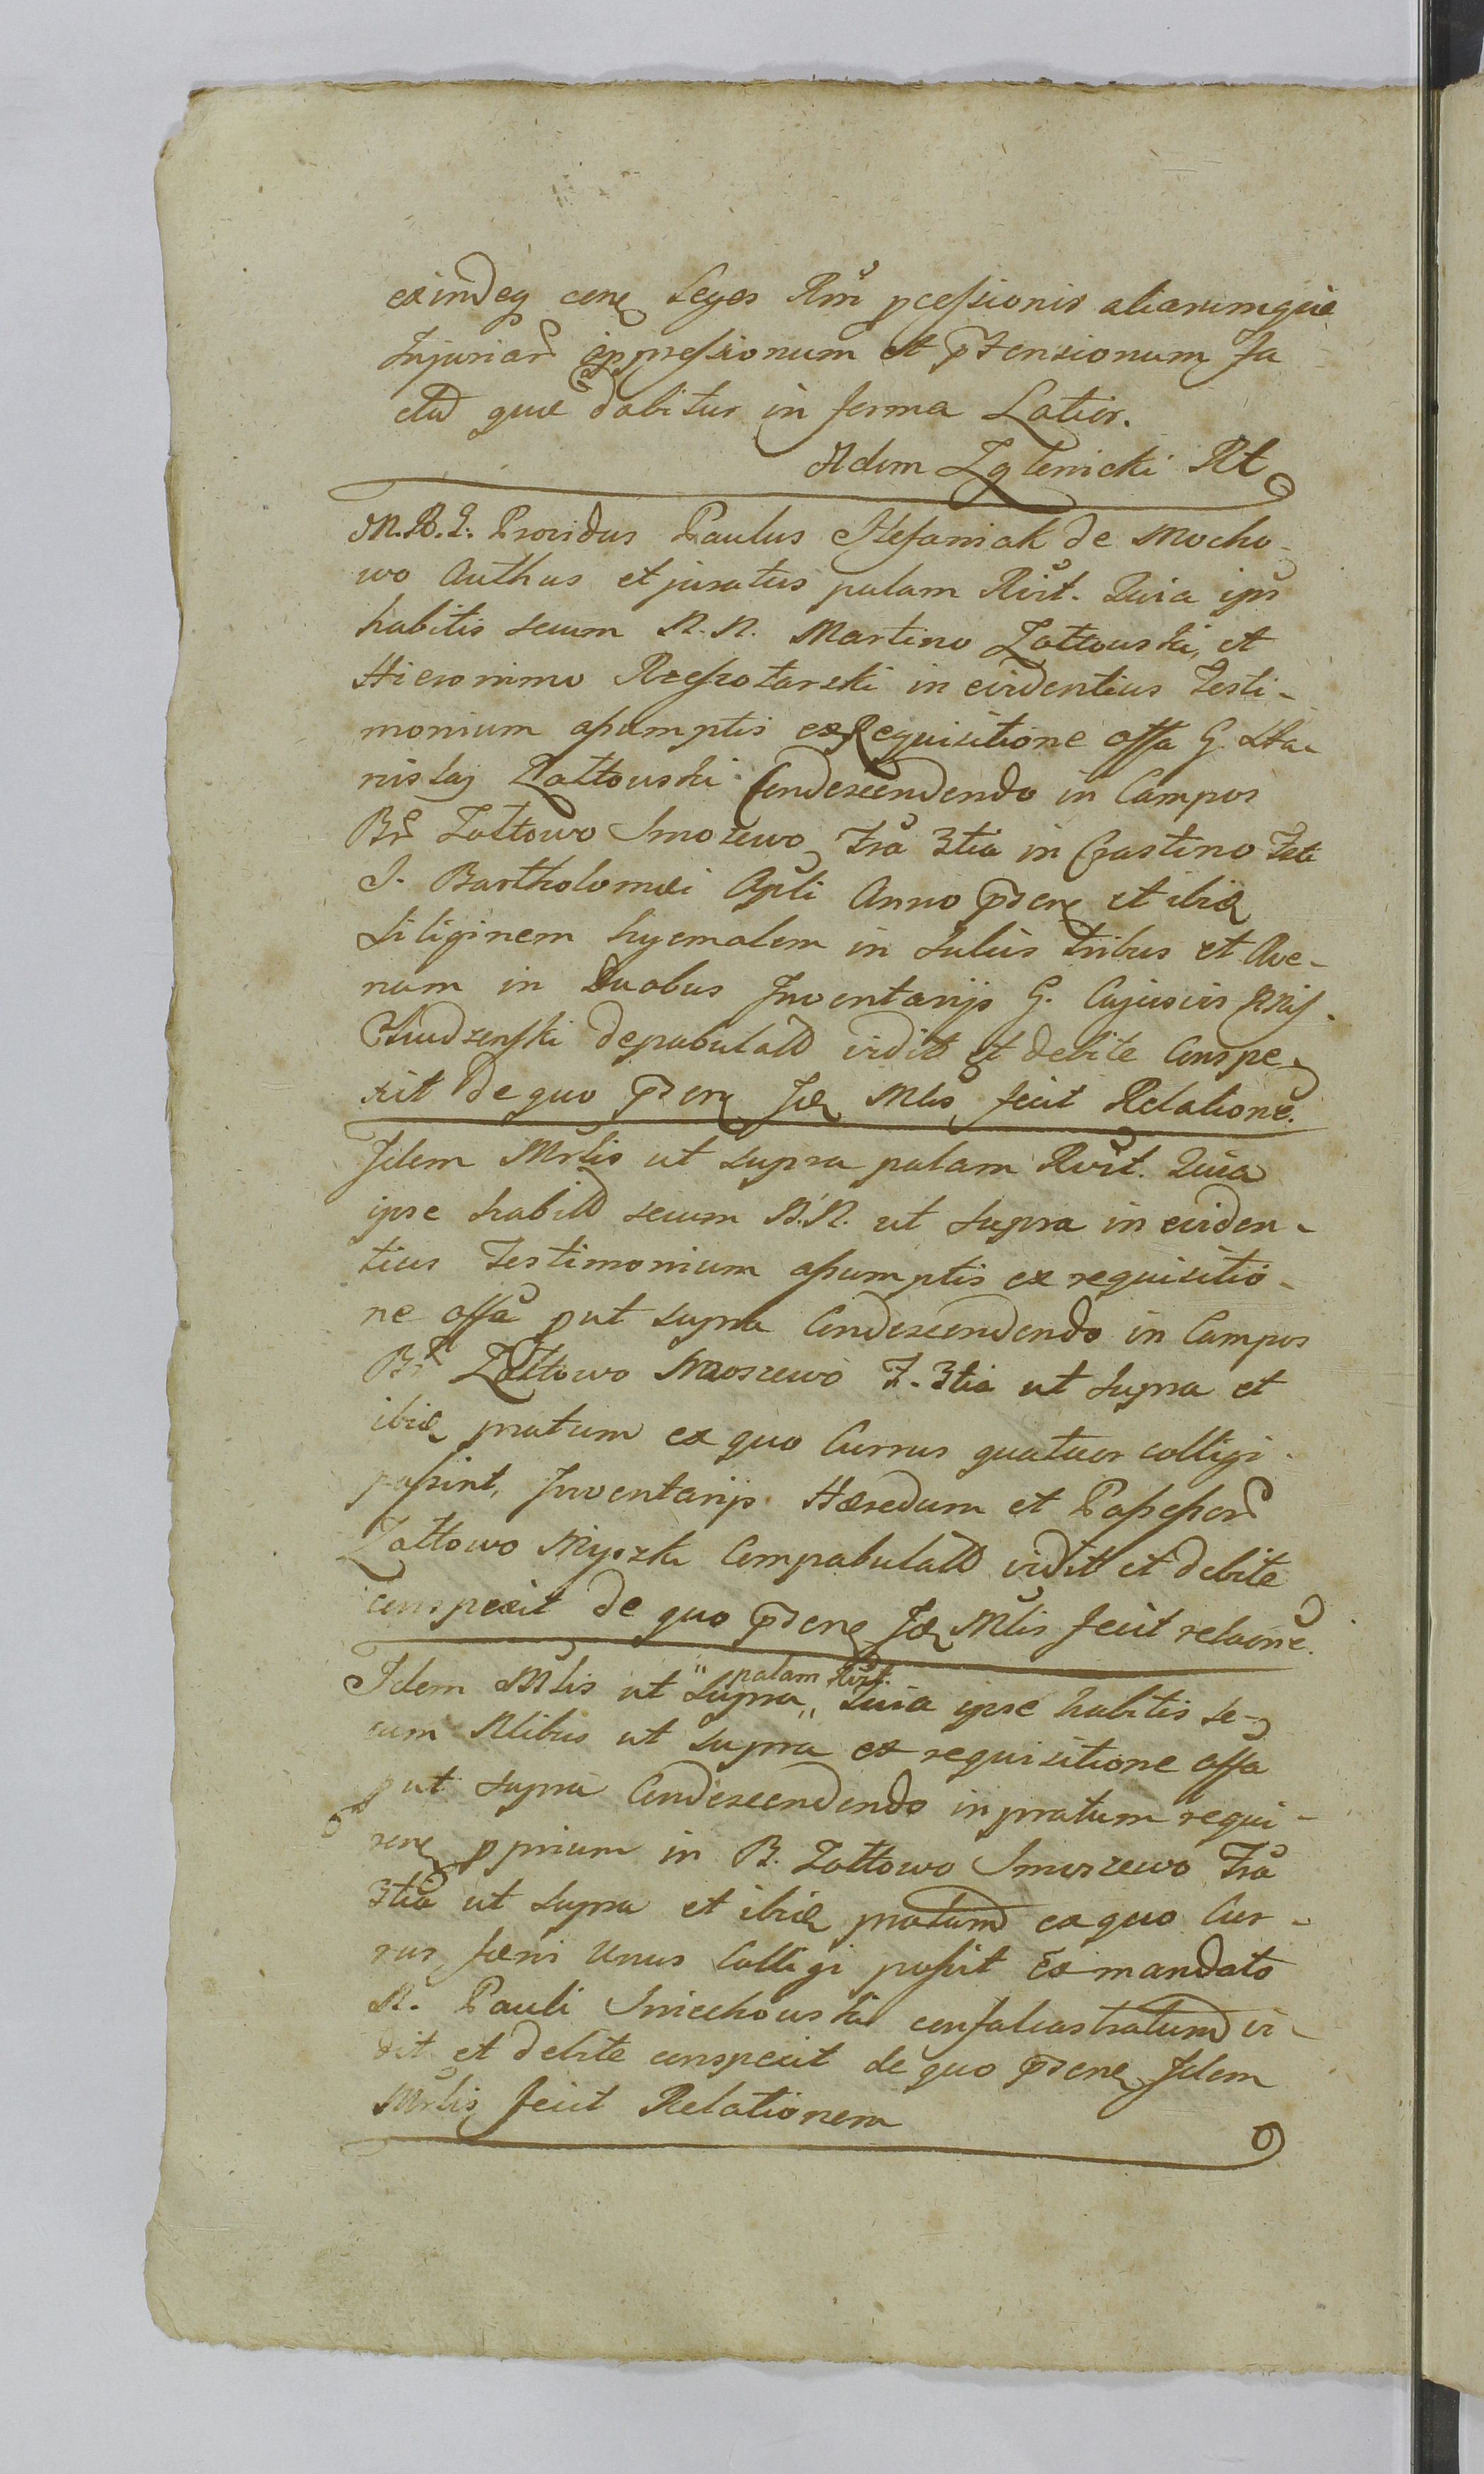 exindeq cerne Leges Rni pcessionis aliarumque
Injuriar oppressionum et ptensionum Ja
ctur quæ dabitur in forma Latior.
Adam Zglenicki Rt
M.R.G. Providus Paulus Stefaniak de Mocho-
wo Authus et juratus palam Rvit. Quia ips
habitis secum N.N. Martino Zattowski, et
Hieronimo Rzeszotarski in evidentius Testi-
monium assumptis ex Requisitione offa G. Sta-
nislaj Zattowski Condescendendo in Campos
Br Zattowo Smorzewo fra 3tia in Crastino Fsti
S. Bartholomæi Apli Anno pnti et ibid
Siliginem hyemalem in Sulcis tribus et Ave-
nam in Duobus Inventarijs G. Cujusvis
depabulatt vidit et debite Conspe-
xit de quo Id Mlis fecit Relatione.
Idem Mrlis ut supra palam Rvit. Quia
ipse habitt secum N.N. ut supra in eviden-
tius Testimonium assumptis ex requisitio-
ne offa put supra Condescendendo in Campos
Br Zattowo Smorzewo F. 3tia ut supra et
ibid pratum ex quo Currus quatuor colligi
possint, Inventarijs Hæredum et Possessor
Zattowo Myszki Compabulatt vidit et debite
conspexit de quo Id Mlis fecit relaone.
Idem Mlis ut supra palam Rvit. Quia ipse habitis se-
cum Nlibus ut supra ex requisitione offa
put supra Condescendendo in pratum requi-
rene pprium in B. Zattowo Smorzewo Fra
3tia ut supra et ibid pratum ex quo Cur-
rus fæni Unus Colligi possit Ex mandato
N. Pauli Sniechowski confalcastratum vi-
dit et debite conspexit de quo Idem
Mrlis fecit Relationem